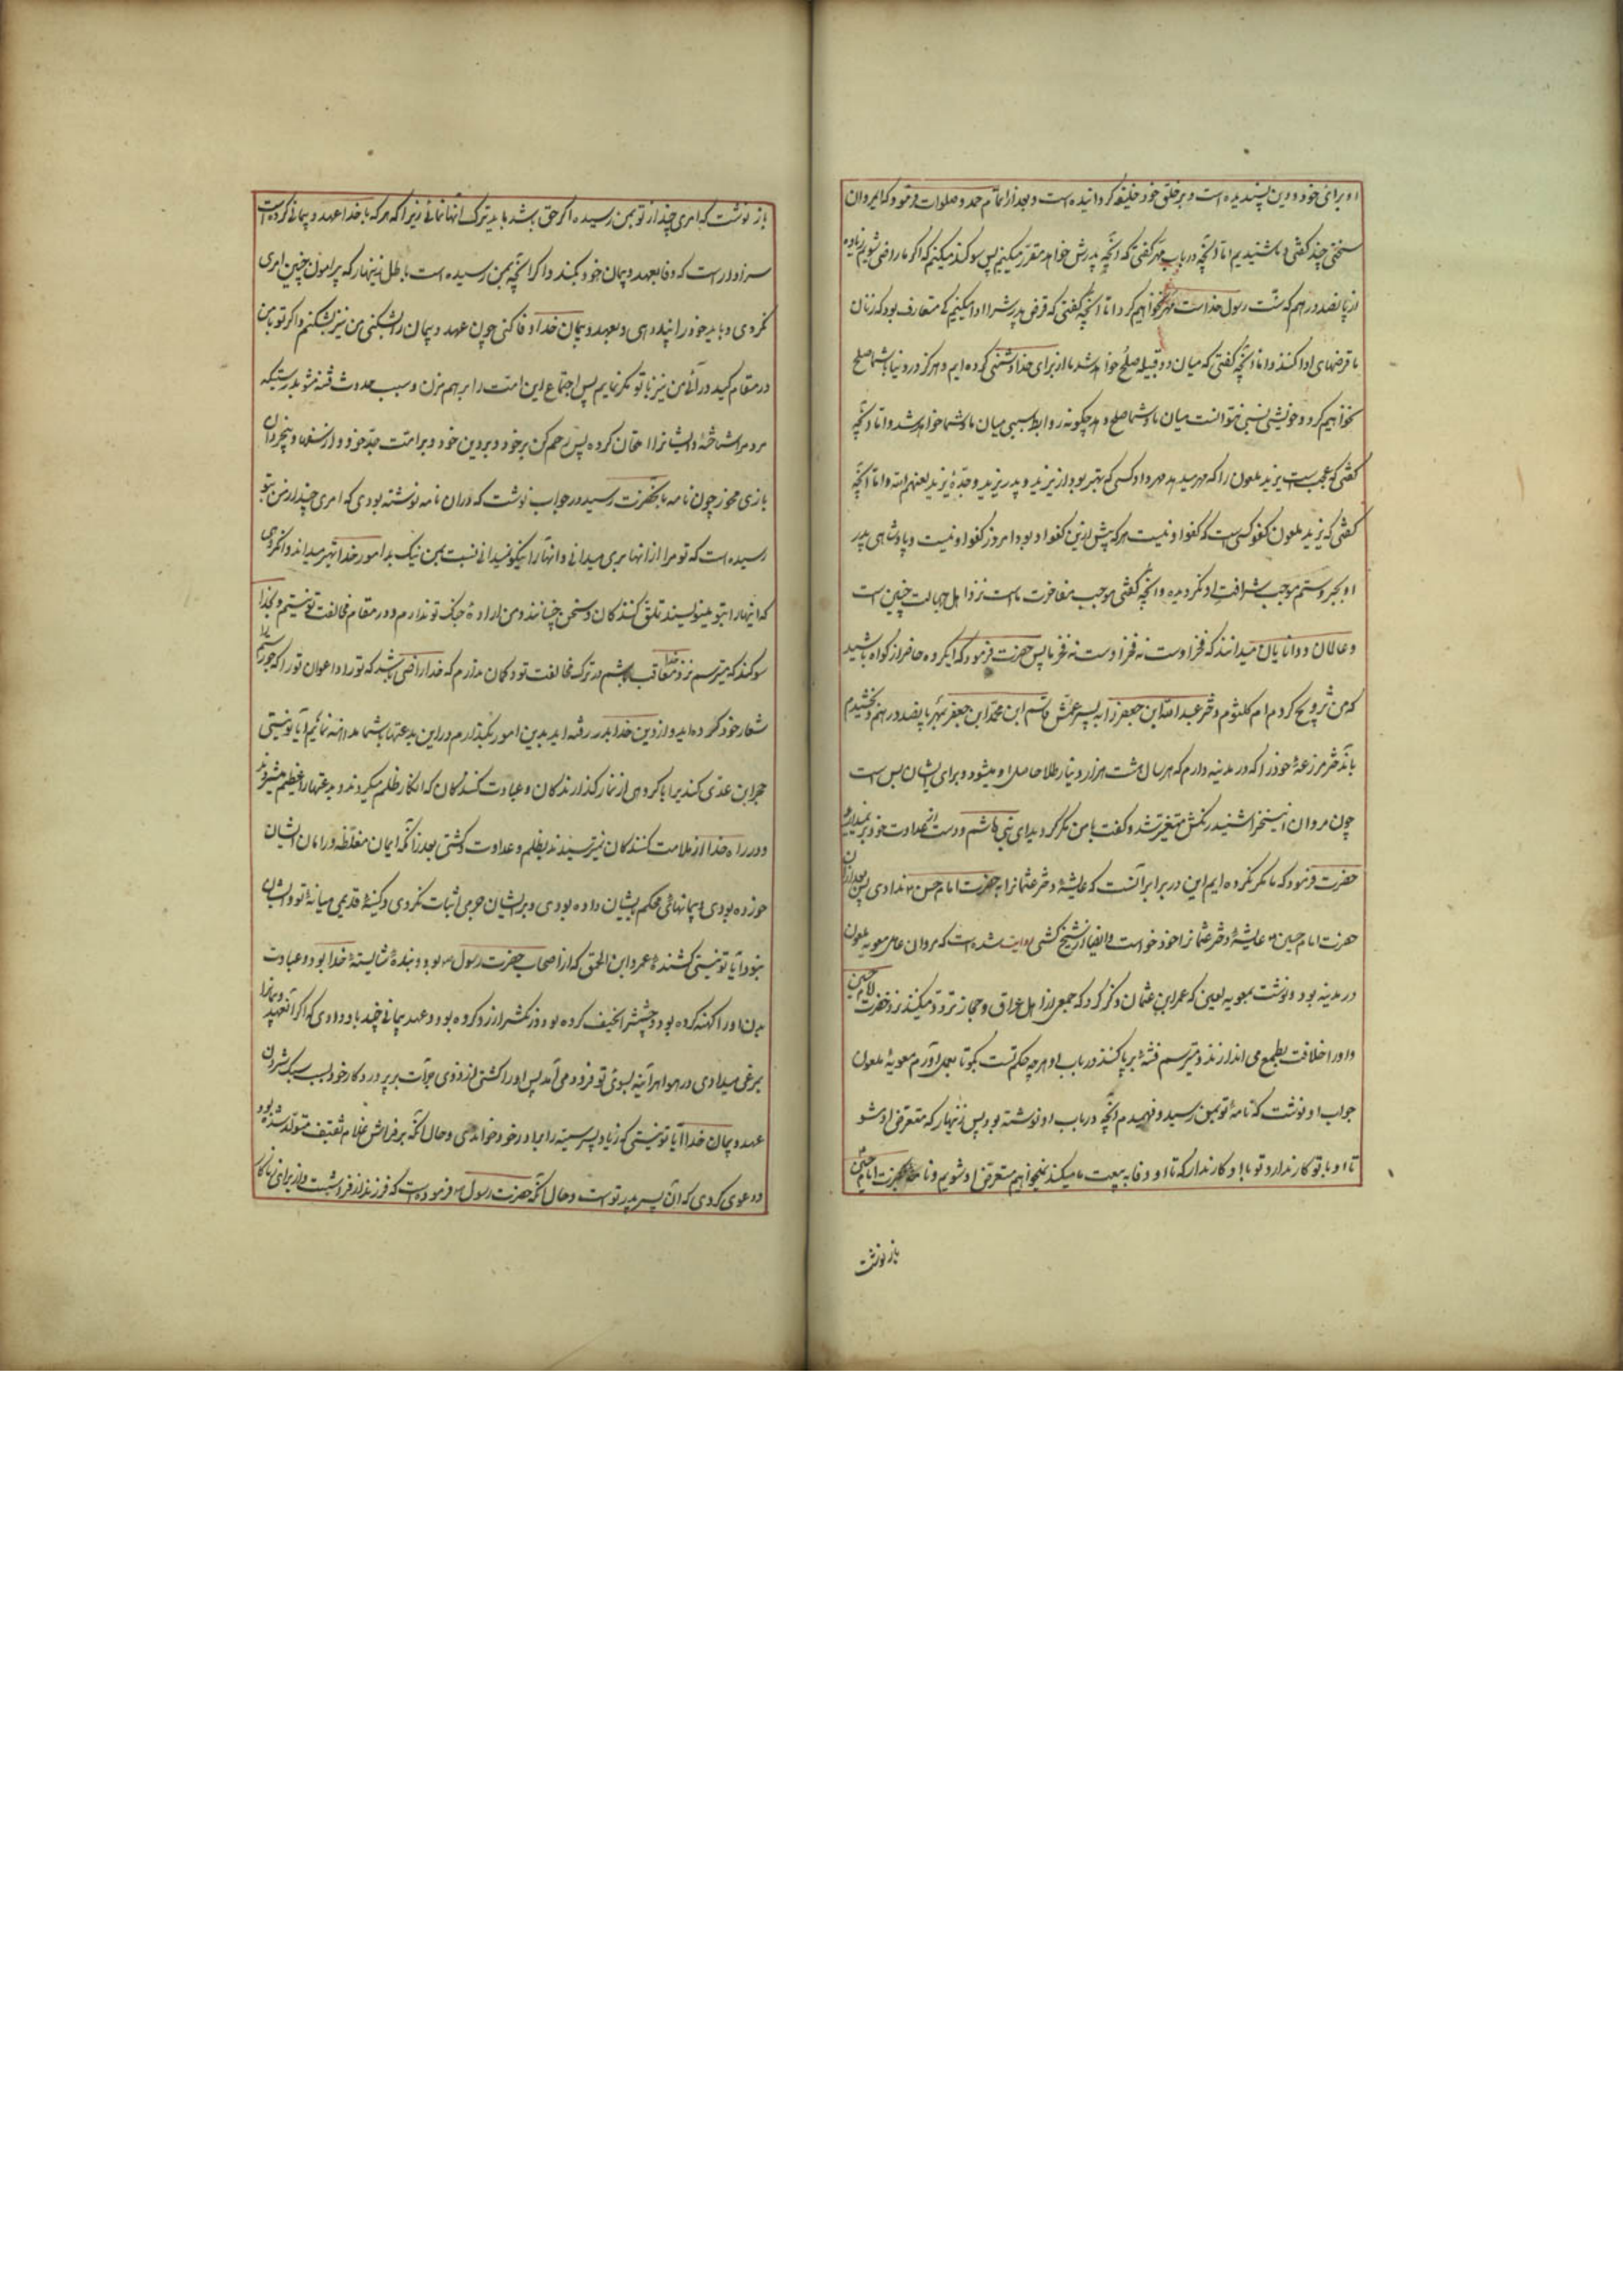 او برای خود و دین پسندیده است و بر خلق خود خلیفه کردانیده است و بعد از اتمام حمد و صلوات فرمود که ای مروان
سخنی چند کفتی و ما شنیدیم اما آنچه در باب مهر کفتی که آنچه پدرش خواهد مقرر میکنیم پس سوکند میکنیم که اکر ما راضی شویم زیاده
از پانصد درهم که سنت رسول خداست مهر نخواهیم کرد اما آنچه کفتی که قرض پدرش را ادا میکنیم کی متعارف بود که زنان
ما قرضهای ادا کنند و اما آنچه کفتی که میان دو قبیله صلح خواهد شد ما از برای خدا دشمنی کرده ایم و هرکز در دنیا با شما صلح
نخواهیم کرد و خویشی نسبی نتوانست میان ما و شما صلح دهد چکونه روابط سببی میان ما و شما خواهد شد و اما آنچه
کفتی که عجب است یزید ملعون را که مهر میدهد مهر داد کسی که بهتر بود از یزید و پدر یزید و جد یزید لعنهم الله و اما آنچه
کفتی که یزید ملعون کفو کسی است که کفو او نیست هر که پیش ازین کفو او بود امروز کفو او نیست و پادشاهی پدر
او بجبر و ستم موجب شرافت او نکردیده و آنچه کفتی موجب مفاخرت ماست نزد اهل جهالت چنین است
و عالمان و دانایان میدانند که فخر اوست نه فخر ما پس حضرت فرمود که ای کروه حاضران کواه باشید
که من تزویج کردم ام کلثوم دختر عبد الله ابن جعفر را به پسر عمش قاسم ابن محمد ابن جعفر بمهر پانصد درهم و بخشیدم
بآن دختر مزرعهٔ خود را که در مدینه دارم که هر سال هشت هزار دینار طلا حاصل او میشود و برای ایشان بس است
چون مروان این سخن را شنید رنکش متغیر شد و کفت با من مکر کردید ای بنی هاشم و دست از عداوت خود بر نمیدارید
حضرت فرمود که ما مکر نکرده ایم این در برابر آنست که عایشهٔ دختر عثمانرا به حضرت امام حسن م ندادی پس بعد از آن
حضرت امام حسین م عایشهٔ دختر عثمانرا خود خواست و ایضا از شیخ کشی روایت شده است که مروان عامل معویه ملعون
در مدینه بود و نوشت بمعویه لعین که عمر ابن عثمان ذکر کرد که جمعی از اهل عراق و حجاز تردد میکنند نزد حضرت امام حسین
و او را خلافت بطمع می اندازند و میترسم فتنهٔ برپا کنند در باب او هر چه حکم تست بکو تا بعمل آورم معویهٔ ملعون
جواب او نوشت که نامهٔ تو بمن رسید و فهمیدم آنچه در باب او نوشته بود پس زینهار که متعرض او مشو
تا او با تو کار ندارد تو با او کار ندار که تا او وفا به بیعت ما میکند نمیخواهیم متعرض او شویم و نامه بحضرت امام حسین
باز نوشت
باز نوشت که امری چند از تو بمن رسیده اکر حق باشد باید ترک آنها نمائی زیرا که هر که با خدا عهد و پیمانی کرده است
سزاوار است که وفا بعهد و پیمان خود بکند و اکر آنچه بمن رسیده است باطل زینهار که پیرامون چنین امری
نکردی و باید خود را پند دهی و بعهد و پیمان خدا وفا کنی چون عهد و پیمان را بشکنی من نیز بشکنم و اکر تو با من
در مقام کید در آئی من نیز با تو مکر نمایم پس اجتماع این امت را بر هم مزن و سبب حدوث فتنه مشو بدرستیکه
مردم را شناختهٔ و ایشانرا امتحان کرده پس رحم کن بر خود و بر دین خود و بر امت جد خود و از سفها و بیخردان
بازی مخور چون نامه بآنحضرت رسید در جواب نوشت که در آن نامه نوشته بودی که امری چند از من بتو
رسیده است که تو مرا از آنها بری میدانی و آنها را نیکو نمیدانی نسبت بمن نیک بد امور خدا بهتر میداند و آنکروهی
که اینها را بتو مینویسند تملق کنندکان و سخن چینانند و من ارادهٔ جنک تو ندارم و در مقام مخالفت تو نیستم و بخدا
سوکند که میترسم نزد خدا معاقب باشم در ترک مخالفت تو و کمان ندارم که خدا راضی باشد که تو را و اعوان تو را که جور و ستم را
شعار خود کرده اید و از دین خدا بدر رفته اید بدین امور بکذارم و در این بدعتها با شما مداهنه نمائیم آیا تو نیستی
حجر ابن عدی کندیرا با کروهی از نماز کذارندکان و عبادت کنندکان که انکار ظلم میکردند و بدعتها را عظیم میشمردند
و در راه خدا از ملامت کنندکان نمیترسیدند بظلم و عداوت کشتی بعد از آنکه ایمان مغلظه در امان ایشان
خورده بودی و پیمانهای محکم بایشان داده بودی و بر ایشان جرمی اثبات نکردی و کینهٔ قدیمی میانهٔ تو و ایشان
نبود آیا تو نیستی کشندهٔ عمرو ابن الحمق که از اصحاب حضرت رسول م بود و بندهٔ شایستهٔ خدا بود و عبادت
بدن او را کهنه کرده بود و جثه اش را نحیف کرده بود و رنکش را زرد کرده بود و عهد و پیمانی چند باو دادی که اکر آنعهد و پیمانرا
بمرغی میدادی در هوا هر آینه بسوی تو فرود می آمد پس او را کشتی از روی جرأت بر پروردکار خود بسبب سبک شمردن
عهد و پیمان خدا آیا تو نیستی که زیاد پسر سمیه را برادر خود خواندی و حال آنکه بر فراش غلام ثقیف متولد شده بود
و دعوی کردی که آن پسر پدر تو است و حال آنکه حضرت رسول م فرموده است که فرزند از فراشست و از برای زناکار